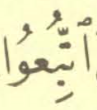 ٱتُّبِعُوا